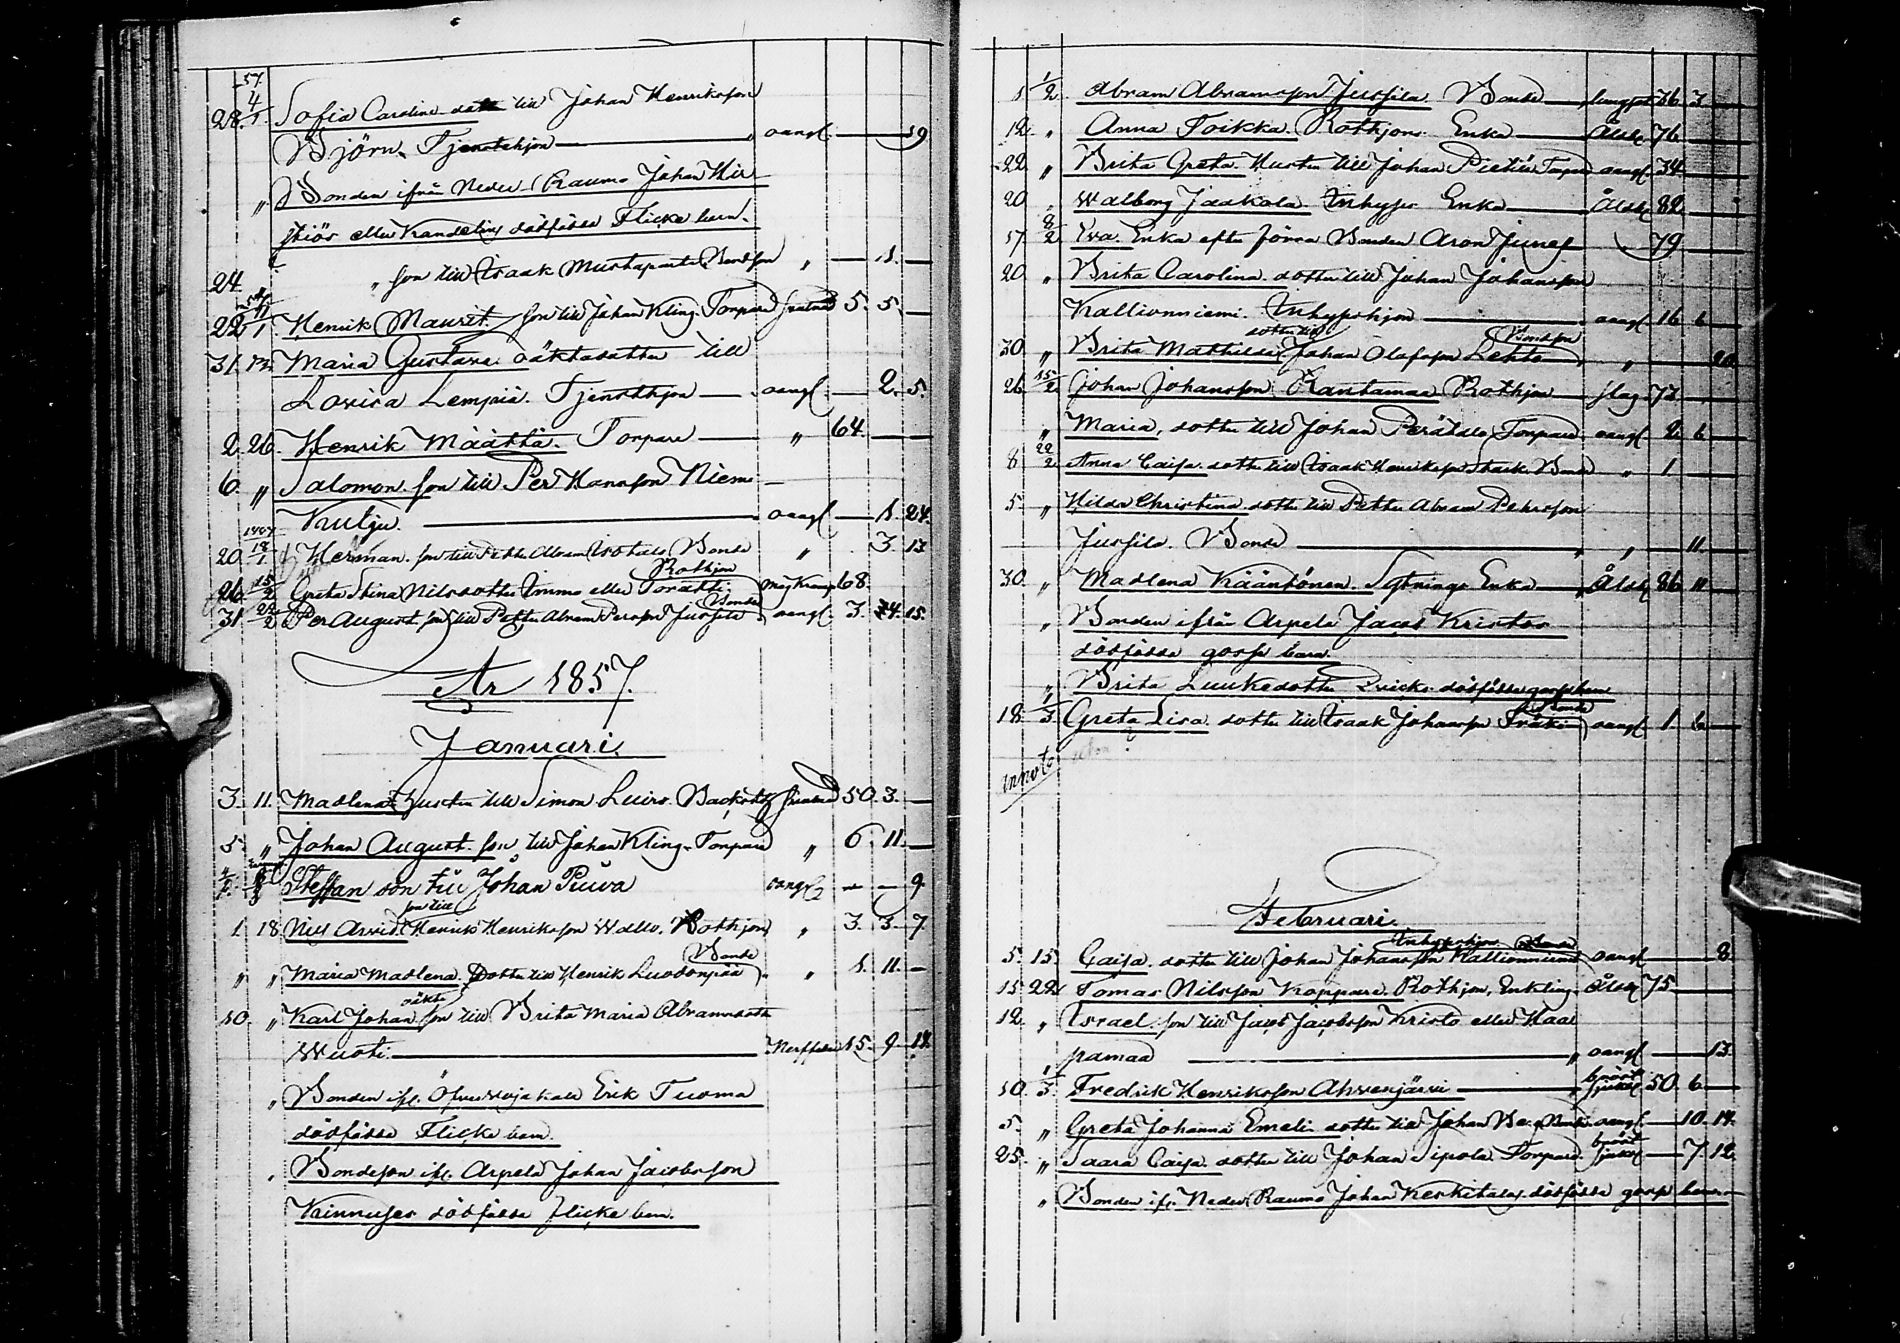 57.
28. 4/1. Sofia Carolina dotter till Johan Henriksson
Björn. Tjenstehjon — oangf. — 19
" Bonden ifrån Neder Raumo Johan
eller Kandelin dödfödde Flicke barn.
24. " son till Isaak Mustaparta Bondson " — 1. —
22. 1 Henrik Maurit. son till Johan Kling. Torpare 5. 5. —
31. Maria Gustava. oäkta dotter till
Lovisa Lempiä. Tjensthjon — oangf. — 2. 5.
2. 26. Henrik Määttä. Torpare — " 64. — —
6. " Salomon. son till Per Hansson Niemi
Krulju — oangf. — 1. 24.
20. 18/1 Herman. son till Petter Abram Bonde " 3. 13
Rothjon
26. 15/2 Greta Stina Nilsdotter Immo eller 68.
Bonde
31. 22/2 Per August. son till Petter Abram Persson Jussila oangf. 3. 15.
År 1857.
Januari.
3. 11. Madlena Hustru till Simon Luiro. 50. 3. —
5. " Johan August. son till Johan Kling. Torpare " 6. 11. —
Steffan son till Johan Puiva oangf — — 9.
son till
1. 18. Nils Arvid Henrik Henriksson Wallo. Rothjon " 3. 3. 7.
Bonde
" " Maria Madlena. Dotter till Henrik " 1. 11. —
oäkta
10. " Karl Johan son till Brita Maria Abramsdotter
Wuoti. — 15. 9. 14.
" Bonden ifr. Öfververjakald Erik Tuoma
dödfödde Flicke barn.
" Bondeson ifr. Arpela Johan Jacobsson
Kinnuses dödfödde flicke barn.
1 1/2 Abram Abramsson Jussila. Bonde — lungsot 36 3
12. " Anna Toikka. Rothjons Enka — Åldd. 76
22. " Brita Greta Hustru till Johan Torpare oangf. 34
20. " Walborg Jaakola. Inhyses Enka — Åldd. 82
17 8/2 Eva. Enka efter förra Bonden Aron 79
20. " Brita Carolina. dotter till Johan Johansson
Kallionniemi. Inhyshjon — oangf 16 6
dotter till
30. " Brita Mathilda Johan Olofsson Lehto " 20
26. 15/2 Johan Johansson Rantamaa Rothjon — slag. 72
" Maria, dotter till Johan Perätalo Torpare. oangf 2. 6
8 22/2 Anna Caisa. dotter till Isaak Henriksson Bonde " 1
5 " Hilda Christina. dotter till Petter Abram Pehrsson
Jussila. Bonde — " 11
30. " Madlena Kääntönen. Sytnings Enka — Åldd. 86 11
" Bonden ifrån Arpela Jacob Kristo
dödfödde gosse barn.
" Brita Luukesdotter dödfödde gossebarn
Bonde
18. /3 Greta Lisa. dotter till Isaak Johansson oangf 1. 6
Februari.
5. 15. Caisa. dotter till Johan Johansson Kallionniemi oangf — 8.
15. 22. Tomas Nilsson Koppara. Rothjon, Enkling. Åldd 75
12. " Israel. son till Jacob Jacobsson Kristo eller Haa
pamaa — " oangf — 13.
bröst
10. 1/3. Fredrik Henriksson Ahvenjärvi — sjukd. 50. 6
5. " Greta Johanna Emeli. dotter till Johan oangf. — 10. 14.
bröst
25. " Saara Caisa. dotter till Johan Sipola Torpare sjukd — 7. 12.
" Bonden ifr. Neder Raumo Johan Keskitalos dödfödde gosse barn.